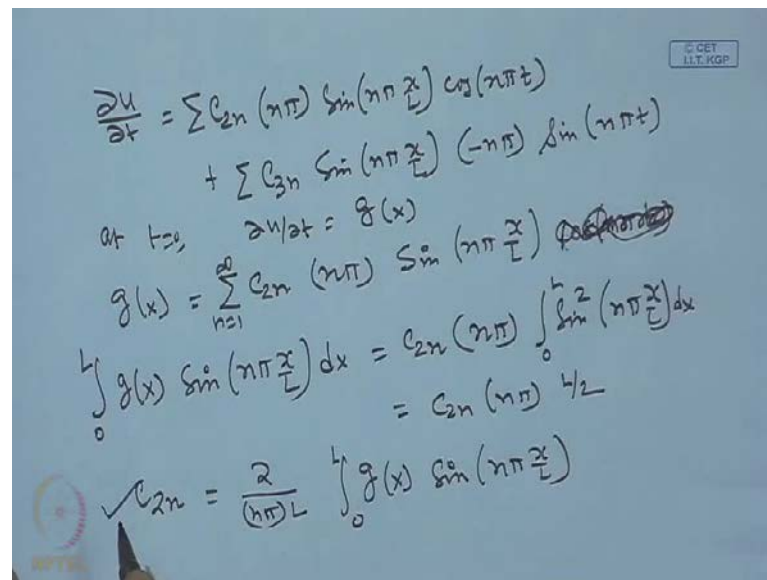 © CET
I.I.T. KGP
∂u/∂t = Σ C2n (nπ) Sin(nπ x/L) cos(nπt)
+ Σ C3n Sin(nπ x/L) (-nπ) Sin(nπt)
at t=0, ∂u/∂t = g(x)
g(x) = Σ_{n=1}^{∞} C2n (nπ) Sin(nπ x/L)
∫_0^L g(x) Sin(nπ x/L) dx = C2n (nπ) ∫_0^L Sin²(nπ x/L) dx
= C2n (nπ) L/2
✓ C2n = 2/((nπ)L) ∫_0^L g(x) Sin(nπ x/L)
NPTEL